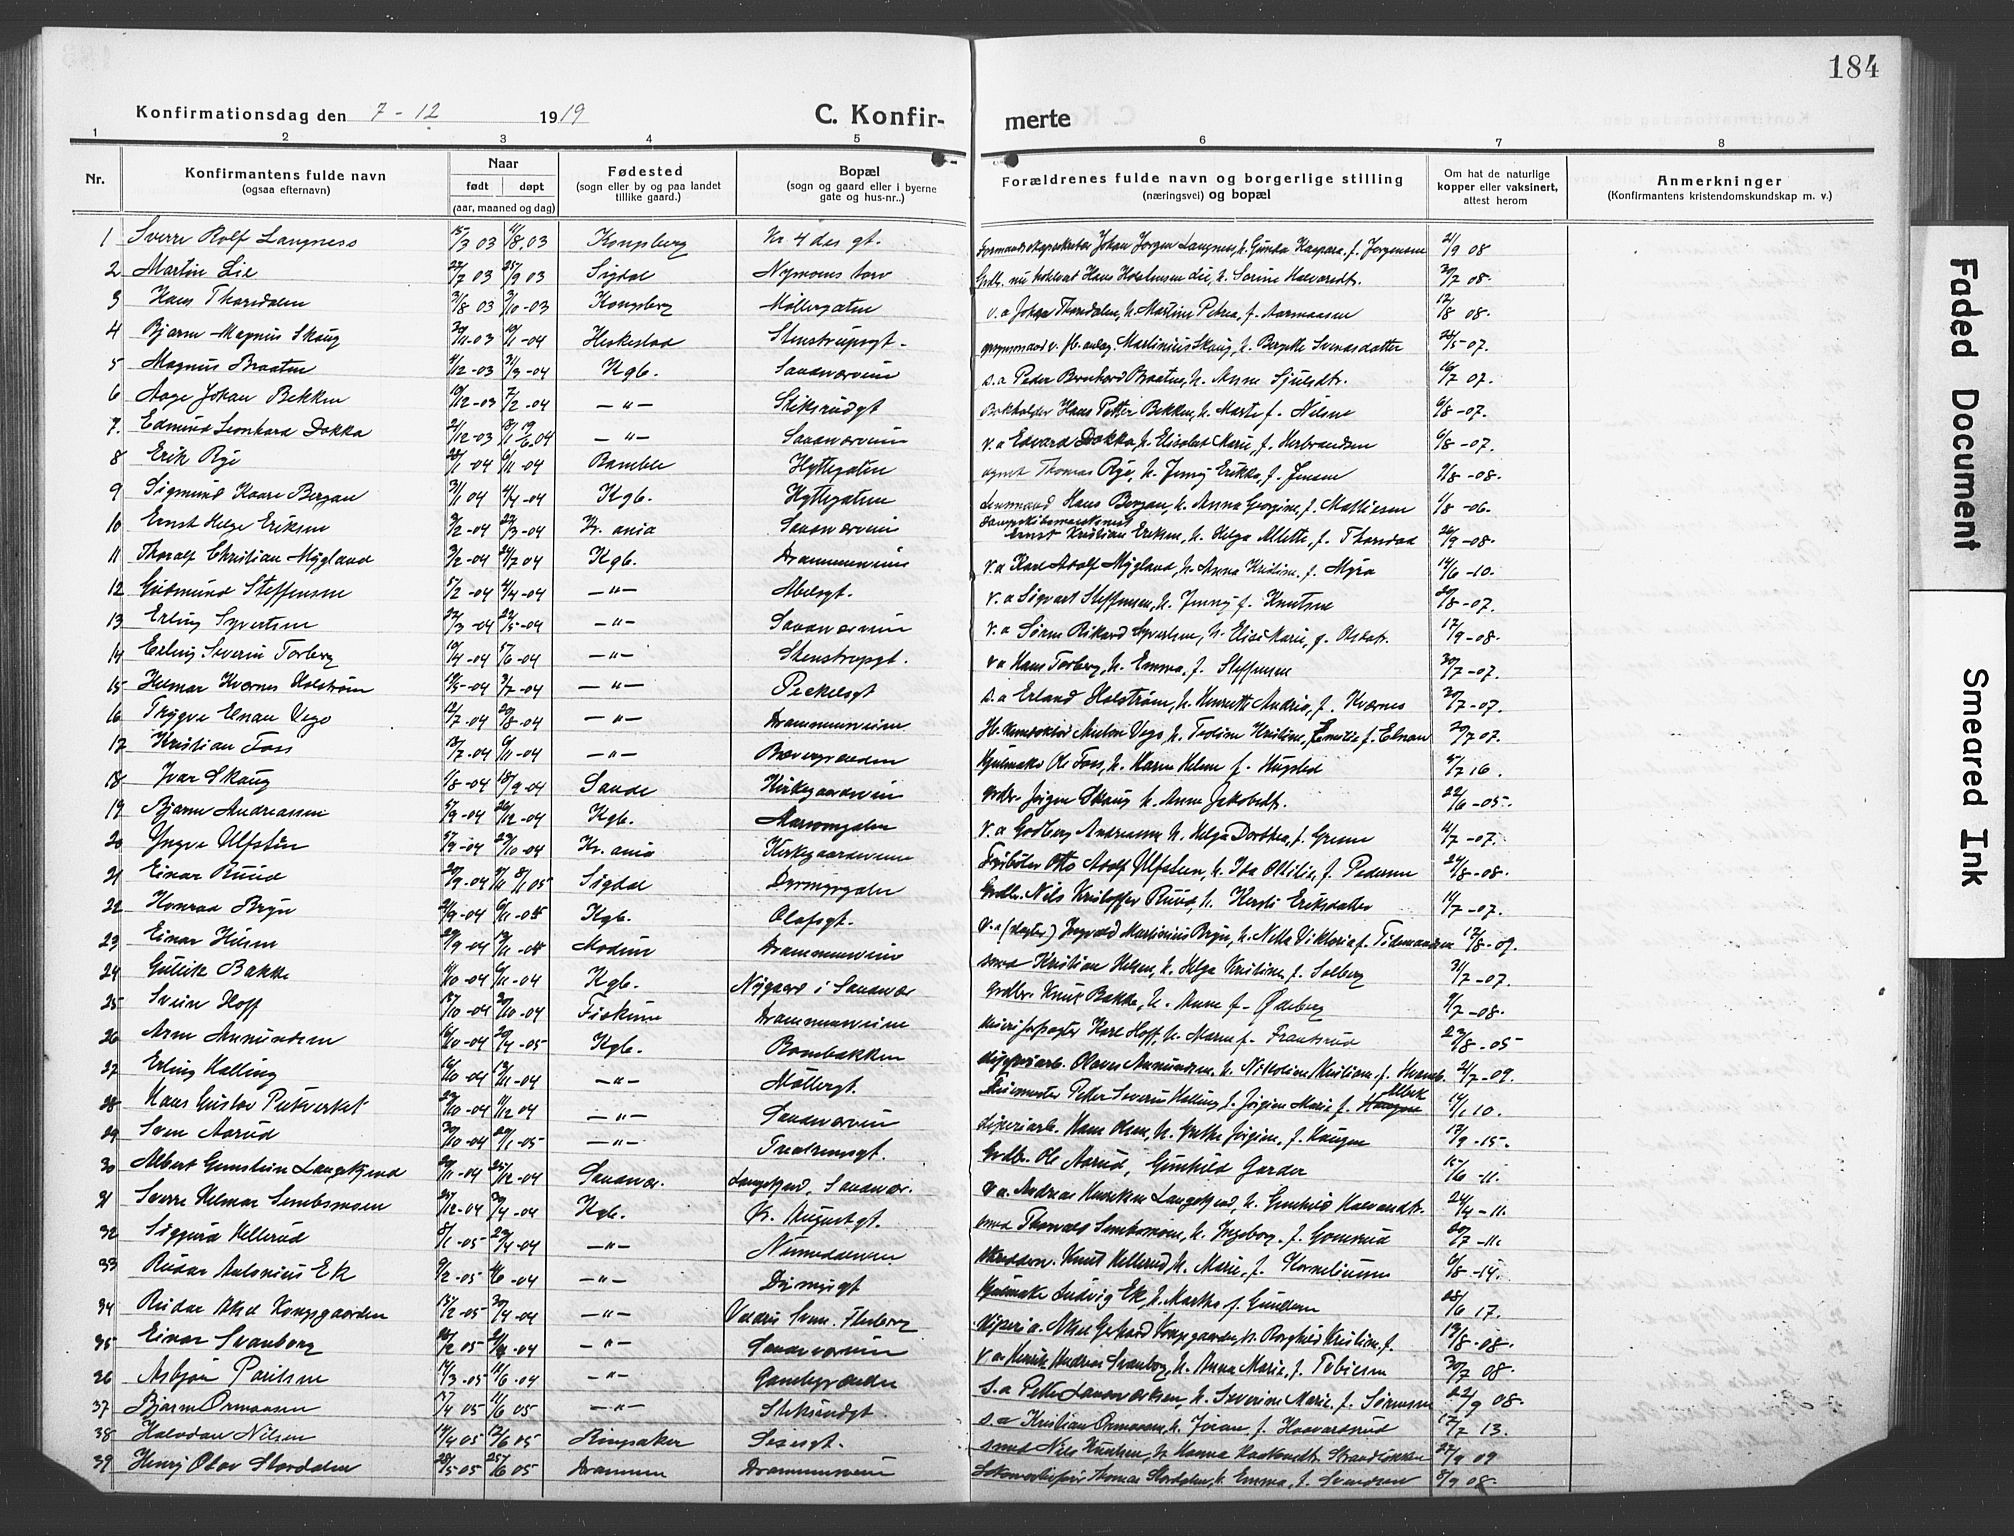 184
Konfirmationsdag den 7-12 1919
C. Konfir-
merte
1 2 3 4 5 6 7 8
Nr.
Konfirmantens fulde navn
(ogsaa efternavn)
Naar
født døpt
(aar, maaned og dag)
Fødested
(sogn eller by og paa landet
tillike gaard.)
Bopæl
(sogn og gaard eller i byerne
gate og hus-nr..)
Forældrenes fulde navn og borgerlige stilling
(næringsvei) og bopæl
Om hat de naturlige
kopper eller vaksinert,
attest herom
Anmerkninger
(Konfirmantens kristendomskundskap m. v.)
1 Sverre Rolf Langness 15/3 03 Kongsberg Kr 4 des gt. Johan Jørgen Langness, h. Gunda Kaspara, f. Jørgensen 21/9 08
2 Martin Lie 22/7 03 25/9 03 Sigdal Nymoens torv Hans Halvorsen Lie, h. Sørine Halvorsdt. 30/7 08.
3 Hans Thorsdalen 31/8 03 3/10-03 Kongsberg Møllergaten v.a Johan Thorsdalen, h. Martine Petrea, f. Aarmaasen 12/8 08.
4 Bjarne Magnus Skaug 30/11-03 10/1-04 Heskestad Stenstrupsgt. Martinius Skaug, h. Bergitte Svensdatter 28/5-07.
5 Magnus Braaten 4/12-03 31/3-04 Kgb. Sandsværveien s.a Peder Bernhard Braaten, h. Anne Sjulsdtr. 16/7 07.
6 Aage Johan Bekken 10/12-03 7/2-04 —"— Stiksrudgt Bokholder Hans Petter Bekken, h. Marte f. Nilsen 6/8-07.
7. Edmund Leonhard Dokka 21/12-03 —"— Sandsværveien v.a Edvard Dokka, h. Elisabet Marie, f. Herbrandsen 6/8-07.
8 Erik Rye 28/1-04 6/11-04 Bamble Hyttegaten agent Thomas Rye, h. Jenny Erikka, f. Jensen 4/8-08.
9 Sigmund Kaare Bergan 31/1 04 4/4-04 Kgb. Hyttegaten Hans Bergan, h. Anna Georgine, f. Mathiesen 1/8-06.
10 Ernst Helge Eriksen 3/2-04 27/3-04 Kr. ania Sandsværveien Ernst Kristian Eriksen, h. Helga Mlette, f. Thorsdad 26/9-08.
11 Thoralf Christian Mygland 3/2-04 24/7 04 Kgb. Drammensveien v.a Karl Adolf Mygland, h. Anna Kristine, f. Myra 14/6-10.
12 Gudmund Steffensen 5/2-04 4/4-04 —"— Abelsgt. v.a Sigvart Steffensen, h. Jenny f. Knutsen 20/8-07.
13 Erling Syvertsen 22/3-04 22/5-04 —"— Sandsværveien v.a Søren Rikard Syvertsen, h. Elise Marie, f. Olsdtr. 17/9-08.
14 Erling Severin Torberg 10/4-04 5/6-04 —"— Stenstrupsgt. v.a Hans Torberg, h. Emma, f. Steffensen 30/7-07.
15 Hilmar Kværnes Holstrøm 19/5-04 3/7-04 —"— Peckelsgt s.a Erland Holstrøm, h. Henriette Andrea, f. Kværnes 20/7-07.
16 Trygve Elnan Vego 12/7-04 28/8-04 —"— Drammensveien Anton Vego, h. Teoline Kristine, Emilie f. Elnan 20/7 07.
17 Kristian Foss 13/7-04 6/11-04 —"— Bævergranden Hjulmaker Ole Foss, h. Karen Helene f. Hugsted 5/7 16.
18 Ivar Skaug 1/8-04 18/9-04 Sande Kirkegaardsveien grdbr. Jørgen Skaug h. Anne Jakobsdt. 22/6-05.
19 Bjarne Andreassen 5/9-04 26/12-04 Kgb. v.a Godtberg Andreassen h. Helga Dorthea, f. Grenne 4/7-07.
20 Yngve Ulfsten 5/9-04 23/10-04 Kr. ania Kirkegaardsveien Otto Adolf Ulfsteen, h. Ida Ottilie, f. Pedersen 24/8-08.
21 Einar Ruud 20/9-04 Sigdal Dyrmyrgaten Grdbr. Nils Kristoffer Ruud, h. Kersti Eriksdatter 14/7-07.
22 Konrad Bryn 21/9-04 6/11-04 Kgb. Olafsgt. v.a (sløyter) Ingvald Martinius Bryn, h. Netta Viktoria f. Tidemandsen 12/8-09.
23 Einar Hilsen 29/9-04 13/11-04 Modum Drammensveien smed Kristian Helsen, h. Helga Kristine, f. Solberg 31/7-07.
24 Gullik Bakke 11/10-04 6/11-04 Kgb. Nygaard i Sandsvær Grdbr. Knut Bakke, h. Anne f. Ødeberg 9/7-08.
25 Svein Hoff 15/10-04 30/10-04 Fiskum Drammensveien Karl Hoff, h. Maren f. Frantsrud 23/8-05
26 Arne Amundsen 16/10-04 20/4-05 Kgb. Bombakken Olaves Amundsen, h. Nikoline Kristiane, f. 21/7-09.
27 Erling Halling 16/10-04 13/11-04 —"— Møllergt. Petter Severin Halling, h. Jørgine Marie f. 14/1 10.
28 Hans Gustav Pukverket 27/10-04 11/12 04 —"— Sandsværveien Hans Olsen, h. Grethe Jørgine, f. Haugen 19/9-15.
29 Sven Aarud 30/10-04 29/1-05 —"— Tvetensgt. Grdbr. Ole Aarud, Gunhild Garder 15/6-11.
30 Albert Gunstein Langekjend 20/11-04 25/12-04 Sandsvær. Langekjend, Sandsvær. v.a. Andreas Henriksen Langekjend, h. Gunhild Halvardtr. 24/4-11.
31 Sverre Helmar Sembsmoen 25/12-04 30/4-04 Kgb. Kr. Augustgt. smed Thorvald Sembsmoen, h. Ingeborg, f. Gomsrud 20/7-11.
32 Siggurd Hellerud 8/1-05 23/4-04 —"— Numedalsveien Knut Hellerud, h. Marie, f. Korneliussen 6/8-14.
33 Rudar Antonius Ek 9/2-05 4/6-04 —"— Dyrmyrgt Hjulmaker Ludvig Ek, h. Marthe f. Gundersen 28/6 17.
34 Reidar Aksel Kongsgaarden 15/2-05 30/4-04 —"— Aksel Gerhard Kongsgaarden, h. Borghild Kristine, f. 19/8-08.
35 Einar Svanborg 28/2 05 24/4 04 —"— Sandsværveien v.a Henrik Andreas Svanborg, h. Anna Marie, f. Tobiesen 30/7 08.
36 Asbjørn Paulsen 17/3-05 11/6 04 —"— Gamlegrænden S.a Petter Sandsværksen, h. Severine Marie, f. Sørensen 22/9 08.
37 Bjarne Ormaasen 17/4 05 11/6 05 —"— Stiksrudgt. s.a Kristian Ormaasen, h. Joran, f. Haavardsrud 17/7 13.
38 Halvdan Nilsen 19/4 05 12/6 05 Ringsaker smed Nils Knutsen, h. Hanna Strandløkken 27/9 09
39 Henry Olav Stordalen 28/5-05 25/6 05 Drammen Drammensveien Lokomotivfører Thomas Stordalen, h. Emma, f. Svendsen 8/9 08.
Faded Document
Smeared Ink